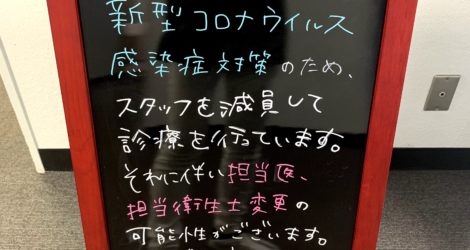 新型コロナウイルス
感染症対策のため、
スタッフを減員して
診療を行っています。
それに伴い担当医、
担当衛生士変更の
可能性がございます。